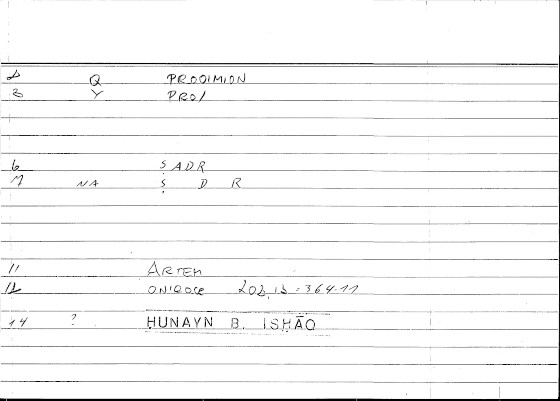 Q PROOIMION
3 Y PRO/
6 ṢADR
7 NA Ṣ D R
11 ARTEM
12 ONIROCR 202,13 = 364.11
14 ? HUNAYN B. ISHĀQ